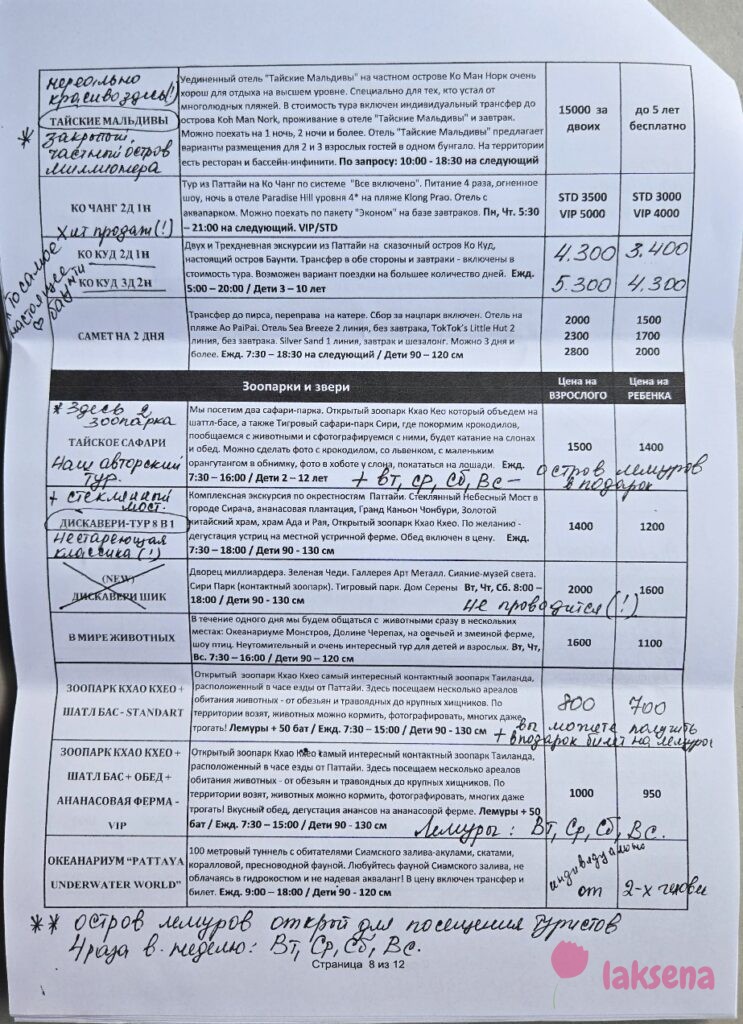 нереально
красиво здесь!
ТАЙСКИЕ МАЛЬДИВЫ
* Закрытый,
частный остров
миллионера
Уединенный отель "Тайские Мальдивы" на частном острове Ко Ман Норк очень
хорош для отдыха на высшем уровне. Специально для тех, кто устал от
многолюдных пляжей. В стоимость тура включен индивидуальный трансфер до
острова Koh Man Nork, проживание в отеле "Тайские Мальдивы" и завтрак.
Можно поехать на 1 ночь, 2 ночи и более. Отель "Тайские Мальдивы" предлагает
варианты размещения для 2 и 3 взрослых гостей в одном бунгало. На территории
есть ресторан и бассейн-инфинити. По запросу: 10:00 - 18:30 на следующий
15000 за
двоих
до 5 лет
бесплатно
КО ЧАНГ 2Д 1Н
Хит продаж(!)
Тур из Паттайи на Ко Чанг по системе "Все включено". Питание 4 раза, огненное
шоу, ночь в отеле Paradise Hill уровня 4* на пляже Klong Prao. Отель с
аквапарком. Можно поехать по пакету "Эконом" на базе завтраков. Пн, Чт. 5:30
– 21:00 на следующий. VIP/STD
STD 3500
VIP 5000
STD 3000
VIP 4000
* То самое
настоящее
баунти
КО КУД 2Д 1Н
КО КУД 3Д 2Н
Двух и Трехдневная экскурсии из Паттайи на сказочный остров Ко Куд,
настоящий остров Баунти. Трансфер в обе стороны и завтраки - включены в
стоимость тура. Возможен вариант поездки на большее количество дней. Ежд.
5:00 – 20:00 / Дети 3 – 10 лет
4.300 3.400
5.300 4.300
САМЕТ НА 2 ДНЯ
Трансфер до пирса, переправа на катере. Сбор за нацпарк включен. Отель на
пляже Ao PaiPai. Отель Sea Breeze 2 линия, без завтрака, TokTok's Little Hut 2
линия, без завтрака. Silver Sand 1 линия, завтрак и шезалонг. Можно 3 дня и
более. Ежд. 7:30 – 18:30 на следующий / Дети 90 – 120 см
2000
2300
2800
1500
1700
2000
Зоопарки и звери
Цена на
ВЗРОСЛОГО
Цена на
РЕБЕНКА
* Здесь 2
зоопарка
ТАЙСКОЕ САФАРИ
Наш авторский
тур.
Мы посетим два сафари-парка. Открытый зоопарк Кхао Кео который объедем на
шаттл-басе, а также Тигровый сафари-парк Сири, где покормим крокодилов,
пообщаемся с животными и сфотографируемся с ними, будет катание на слонах
и обед. Можно сделать фото с крокодилом, со львенком, с маленьким
орангутангом в обнимку, фото в хоботе у слона, покататься на лошади. Ежд.
7:30 – 16:00 / Дети 2 – 12 лет
1500
1400
+ Вт, Ср, Сб, Вс – остров лемуров
в подарок
+ стеклянный
мост.
ДИСКАВЕРИ-ТУР 8 В 1
Нестареющая
классика(!)
Комплексная экскурсия по окрестностям Паттайи. Стеклянный Небесный Мост в
городе Сирача, ананасовая плантация, Гранд Каньон Чонбури, Золотой
китайский храм, храм Ада и Рая, Открытый зоопарк Кхао Кхео. По желанию -
дегустация устриц на местной устричной ферме. Обед включен в цену. Ежд.
7:30 – 18:00 / Дети 90 - 130 см
1400
1200
(NEW)
ДИСКАВЕРИ ШИК
Дворец миллиардера. Зеленая Чеди. Галлерея Арт Металл. Сияние-музей света.
Сири Парк (контактный зоопарк). Тигровый парк. Дом Серены Вт, Чт, Сб. 8:00 –
18:00 / Дети 90 - 130 см
2000
1600
не проводится(!)
В МИРЕ ЖИВОТНЫХ
В течение одного дня мы будем общаться с животными сразу в нескольких
местах: Океанариуме Монстров, Долине Черепах, на овечьей и змеиной ферме,
шоу птиц. Неутомительный и очень интересный тур для детей и взрослых. Вт, Чт,
Вс. 7:30 – 16:00 / Дети 90 – 120 см
1600
1100
ЗООПАРК КХАО КХЕО +
ШАТЛ БАС - STANDART
Открытый зоопарк Кхао Кхео самый интересный контактный зоопарк Таиланда,
расположенный в часе езды от Паттайи. Здесь посещаем несколько ареалов
обитания животных - от обезьян и травоядных до крупных хищников. По
территории возят, животных можно кормить, фотографировать, многих даже
трогать! Лемуры + 50 бат / Ежд. 7:30 – 15:00 / Дети 90 - 130 см
800
700
+ вы можете получить
в подарок билет на лемуры
ЗООПАРК КХАО КХЕО +
ШАТЛ БАС + ОБЕД +
АНАНАСОВАЯ ФЕРМА -
VIP
Открытый зоопарк Кхао Кхео самый интересный контактный зоопарк Таиланда,
расположенный в часе езды от Паттайи. Здесь посещаем несколько ареалов
обитания животных - от обезьян и травоядных до крупных хищников. По
территории возят, животных можно кормить, фотографировать, многих даже
трогать! Вкусный обед, дегустация анансов на ананасовой ферме. Лемуры + 50
бат / Ежд. 7:30 – 15:00 / Дети 90 - 130 см
1000
950
Лемуры: Вт, Ср, Сб, Вс.
ОКЕАНАРИУМ "PATTAYA
UNDERWATER WORLD"
100 метровый туннель с обитателями Сиамского залива-акулами, скатами,
коралловой, пресноводной фауной. Любуйтесь фауной Сиамского залива, не
облачаясь в гидрокостюм и не надевая акваланг! В цену включен трансфер и
билет. Ежд. 9:00 – 18:00 / Дети 90 - 120 см
индивидуально
от 2-х человек
** остров лемуров открыт для посещения туристов
4 раза в неделю: Вт, Ср, Сб, Вс.
Страница 8 из 12
laksena